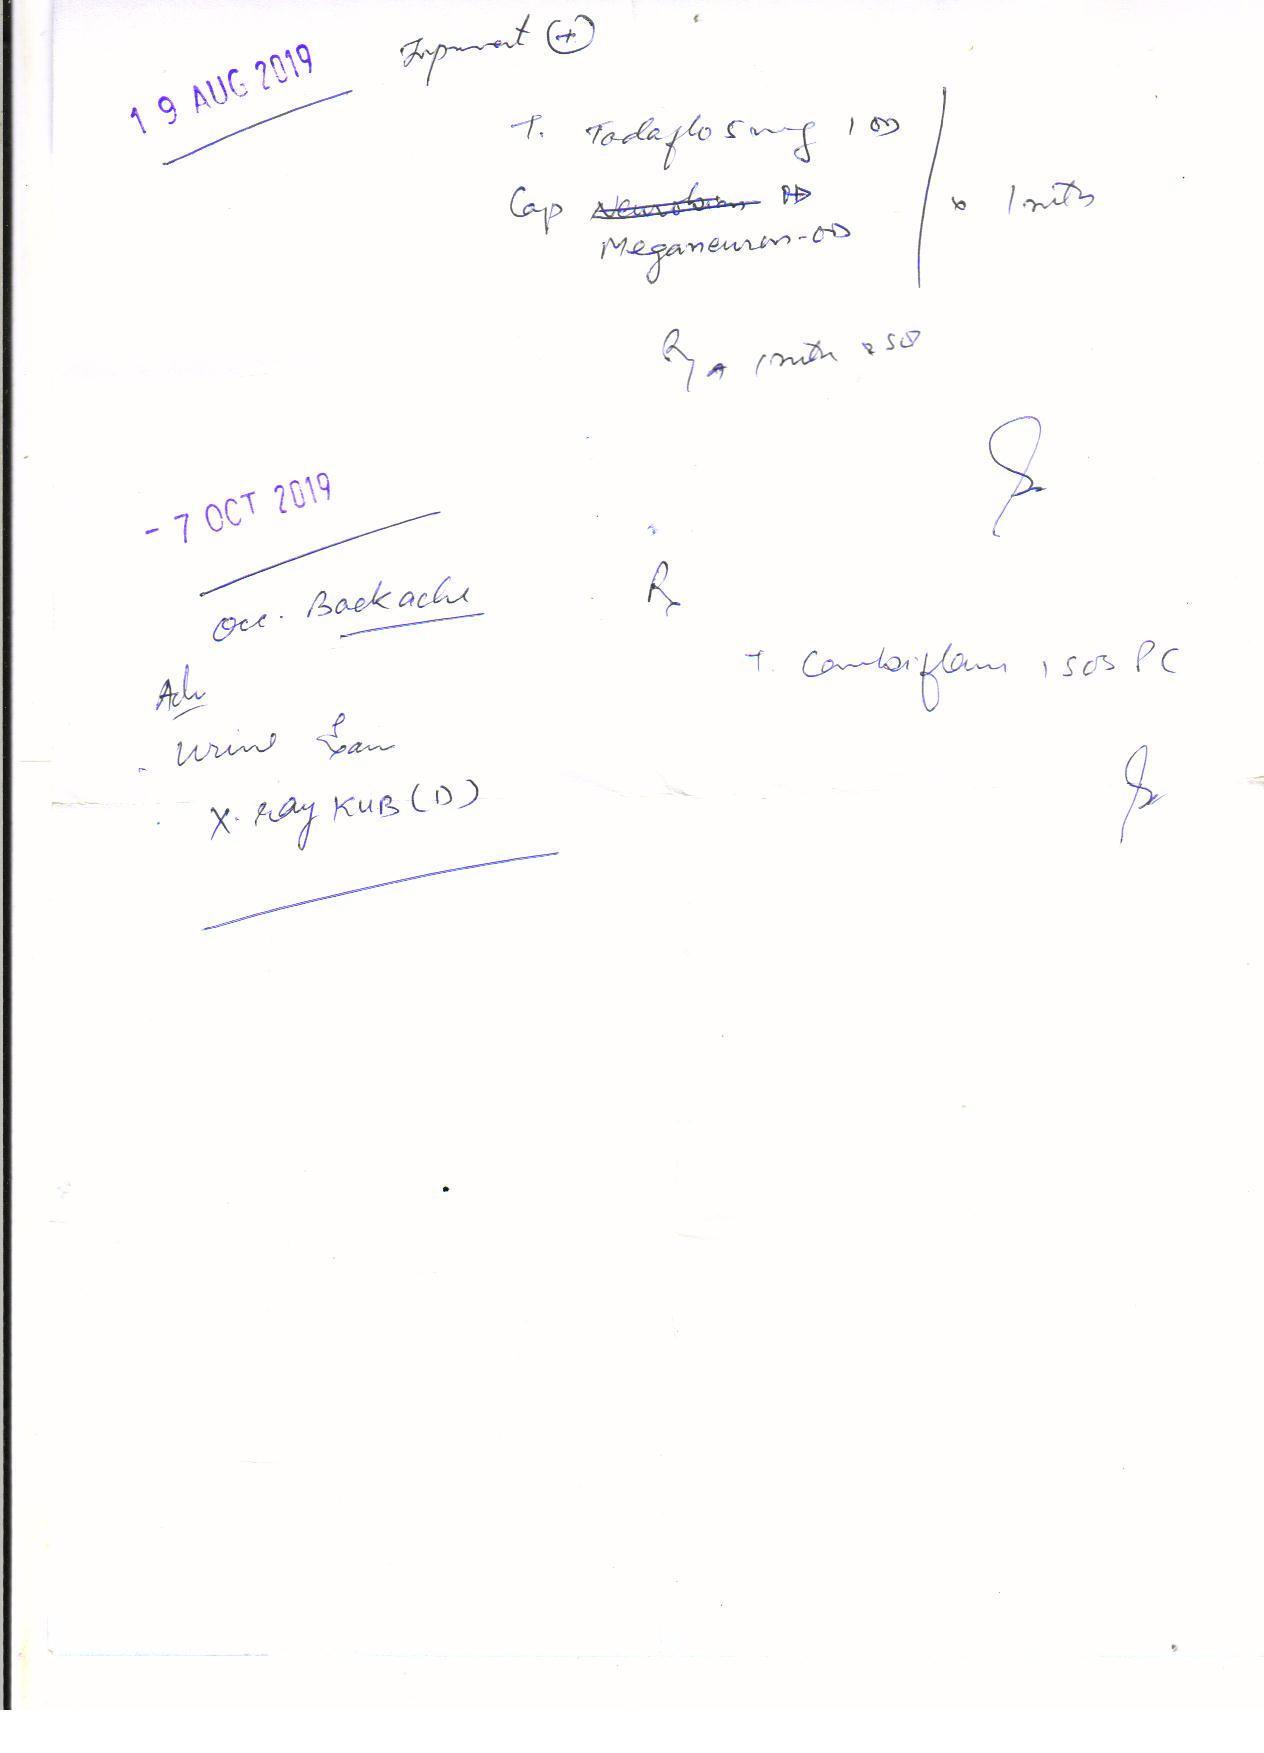 19 AUG 2019
Improvement (+)
T. Tadaflo 5mg 1 OD
Cap
Meganeuron-OD
x 1 mth
Rx 1 mth
- 7 OCT 2019
Occ. Backache
Rx
T. Combiflam 1 SOS PC
Adv
Urine Exam
X-ray KUB (D)